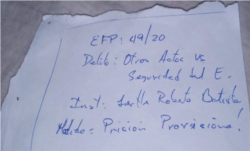 EFP: 49/20
Delito: Otros Actos vs
Seguridad Ind E.
Inst: Roberto Batista
Medida: Prisión Provisional